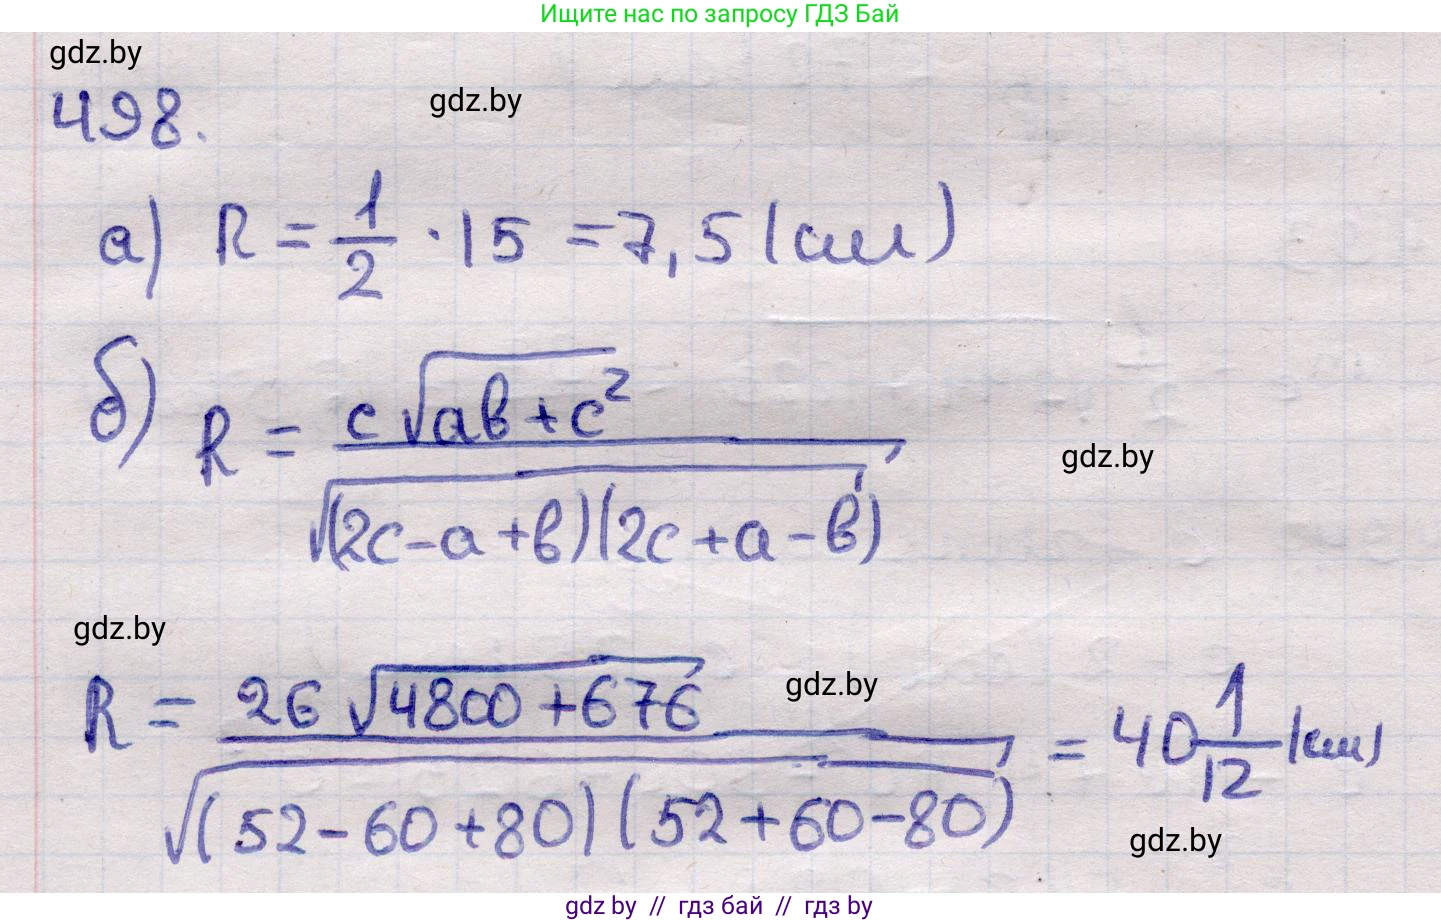 Ищите нас по запросу ГДЗ Бай
gdz.by
498.
gdz.by
а) R = 1/2 · 15 = 7,5 (см)
б) R = c√(ab+c²) / √((2c-a+b)(2c+a-b))
gdz.by
gdz.by
R = 26√(4800+676) / √((52-60+80)(52+60-80)) = 40 1/12 (см)
gdz.by
gdz.by
gdz by // гдз бай // гдз by